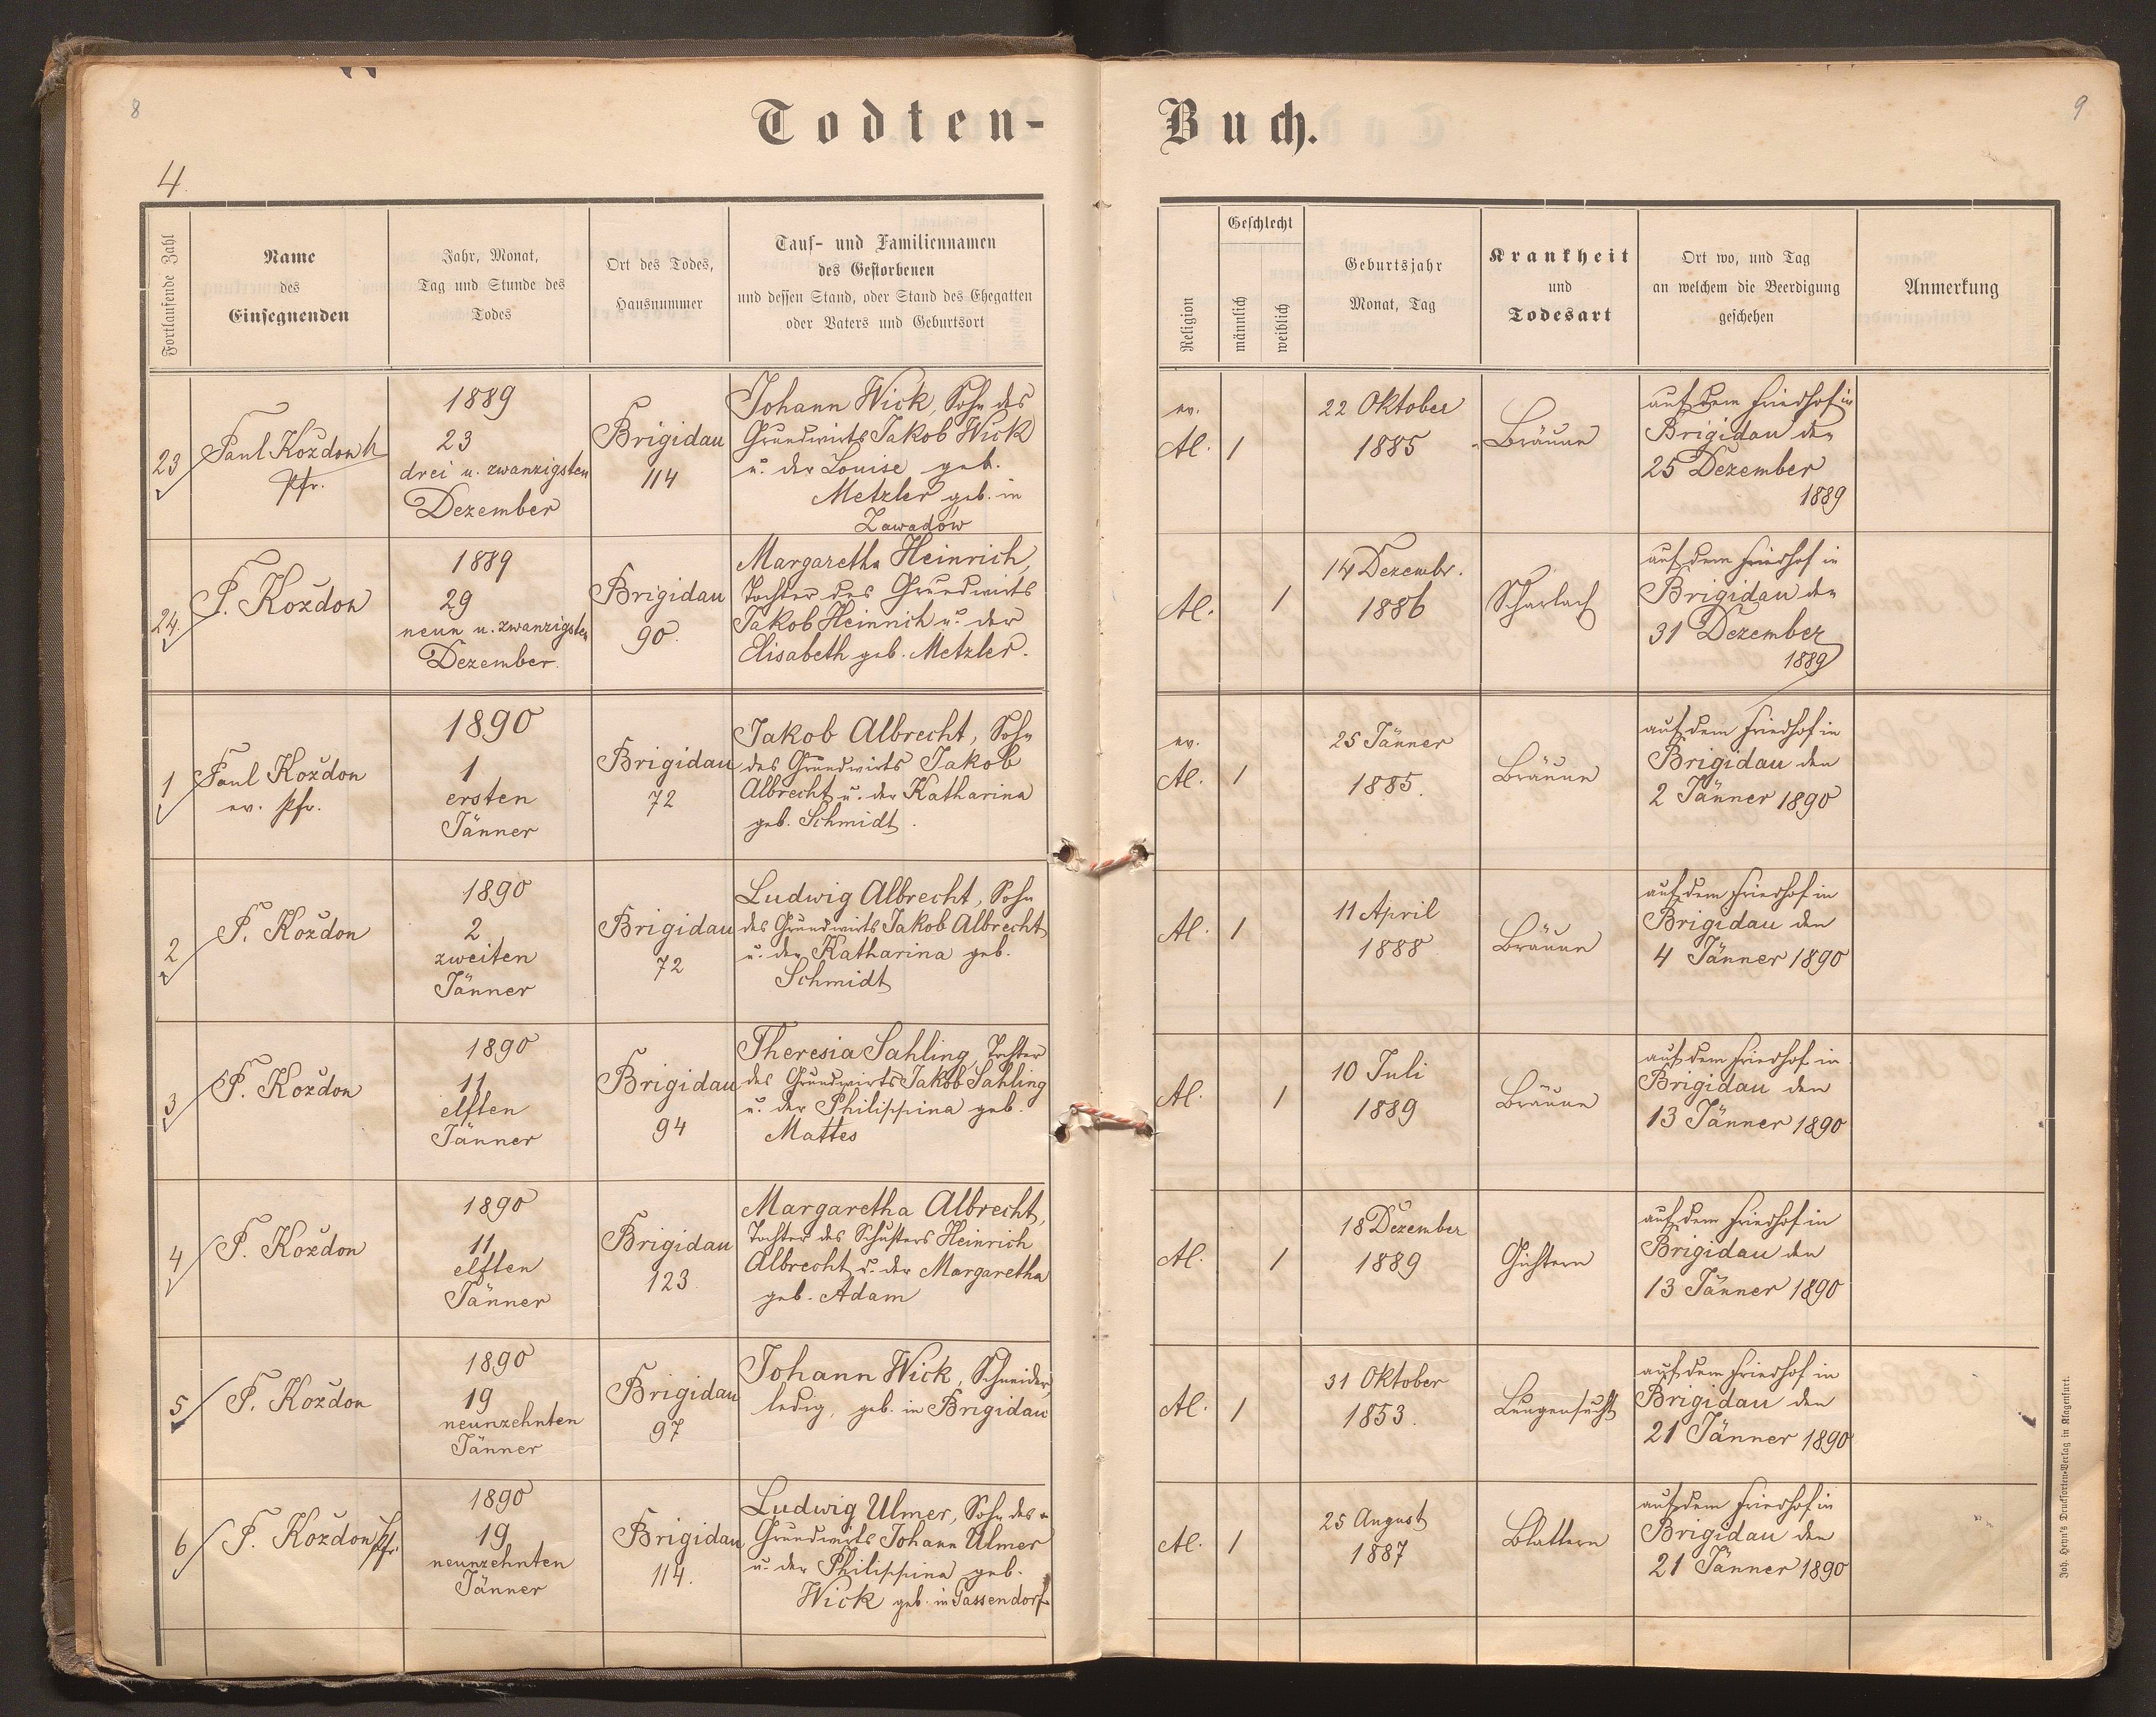 8
Todten-
Buch.
9
4.
Fortlaufende Zahl
Name
des
Einsegnenden
Jahr, Monat,
Tag und Stunde des
Todes
Ort des Todes,
Hausnummer
Tauf- und Familiennamen
des Gestorbenen
und dessen Stand, oder Stand des Ehegatten
oder Vaters und Geburtsort
Religion
Geschlecht
männlich
weiblich
Geburtsjahr
Monat, Tag
Krankheit
und
Todesart
Ort wo, und Tag
an welchem die Beerdigung
geschehen
Anmerkung
23
Paul Kozdon
Pfr.
1889
23
drei u. zwanzigsten
Dezember
Brigidau
114
Johann Wick, Sohn des
Grundwirts Jakob Wick
u. der Louise geb.
Metzler geb. in
Zawadów
ev.
Al.
1
22 Oktober
1885
Bräune
auf dem Friedhof in
Brigidau den
25 Dezember
1889
24.
P. Kozdon
1889
29
neun u. zwanzigsten
Dezember.
Brigidau
90.
Margaretha Heinrich,
Tochter des Grundwirts
Jakob Heinrich u. der
Elisabeth geb. Metzler.
Al.
1
14 Dezembr.
1886
Scharlach
auf dem Friedhof in
Brigidau den
31 Dezember
1889
1
Paul Kozdon
ev. Pfr.
1890
1
ersten
Jänner
Brigidau
72
Jakob Albrecht, Sohn
des Grundwirts Jakob
Albrecht u. der Katharina
geb. Schmidt.
ev.
Al.
1
25 Jänner
1885.
Bräune
auf dem Friedhof in
Brigidau den
2 Jänner 1890
2
P. Kozdon
1890
2
zweiten
Jänner
Brigidau
72
Ludwig Albrecht, Sohn
des Grundwirts Jakob Albrecht
u. der Katharina geb.
Schmidt
Al.
1
11 April
1888
Bräune
auf dem Friedhof in
Brigidau den
4 Jänner 1890
3
P. Kozdon
1890
11
elften
Jänner
Brigidau
94
Theresia Sahling, Tochter
des Grundwirts Jakob Sahling
u. der Philippina geb.
Mattes
Al.
1
10 Juli
1889
Bräune
auf dem Friedhof in
Brigidau den
13 Jänner 1890
4
P. Kozdon
1890
11
elften
Jänner
Brigidau
123
Margaretha Albrecht,
Tochter des Schusters Heinrich
Albrecht u. der Margaretha
geb. Adam
Al.
1
18 Dezember
1889
Gichtern
auf dem Friedhof in
Brigidau den
13 Jänner 1890
5
P. Kozdon
1890
19
neunzehnten
Jänner
Brigidau
97
Johann Wick, Schneider,
ledig, geb. in Brigidau
Al.
1
31 Oktober
1853.
Lungensucht
auf dem Friedhof in
Brigidau den
21 Jänner 1890
6
P. Kozdon Pfr.
1890
19
neunzehnten
Jänner
Brigidau
114.
Ludwig Ulmer, Sohn des
Grundwirts Johann Ulmer
u. der Philippina geb.
Wick geb. in Gassendorf
Al.
1
25 August
1887
Blattern
auf dem Friedhof in
Brigidau den
21 Jänner 1890
Joh. Heyn's Drucksorten-Verlag in Klagenfurt.